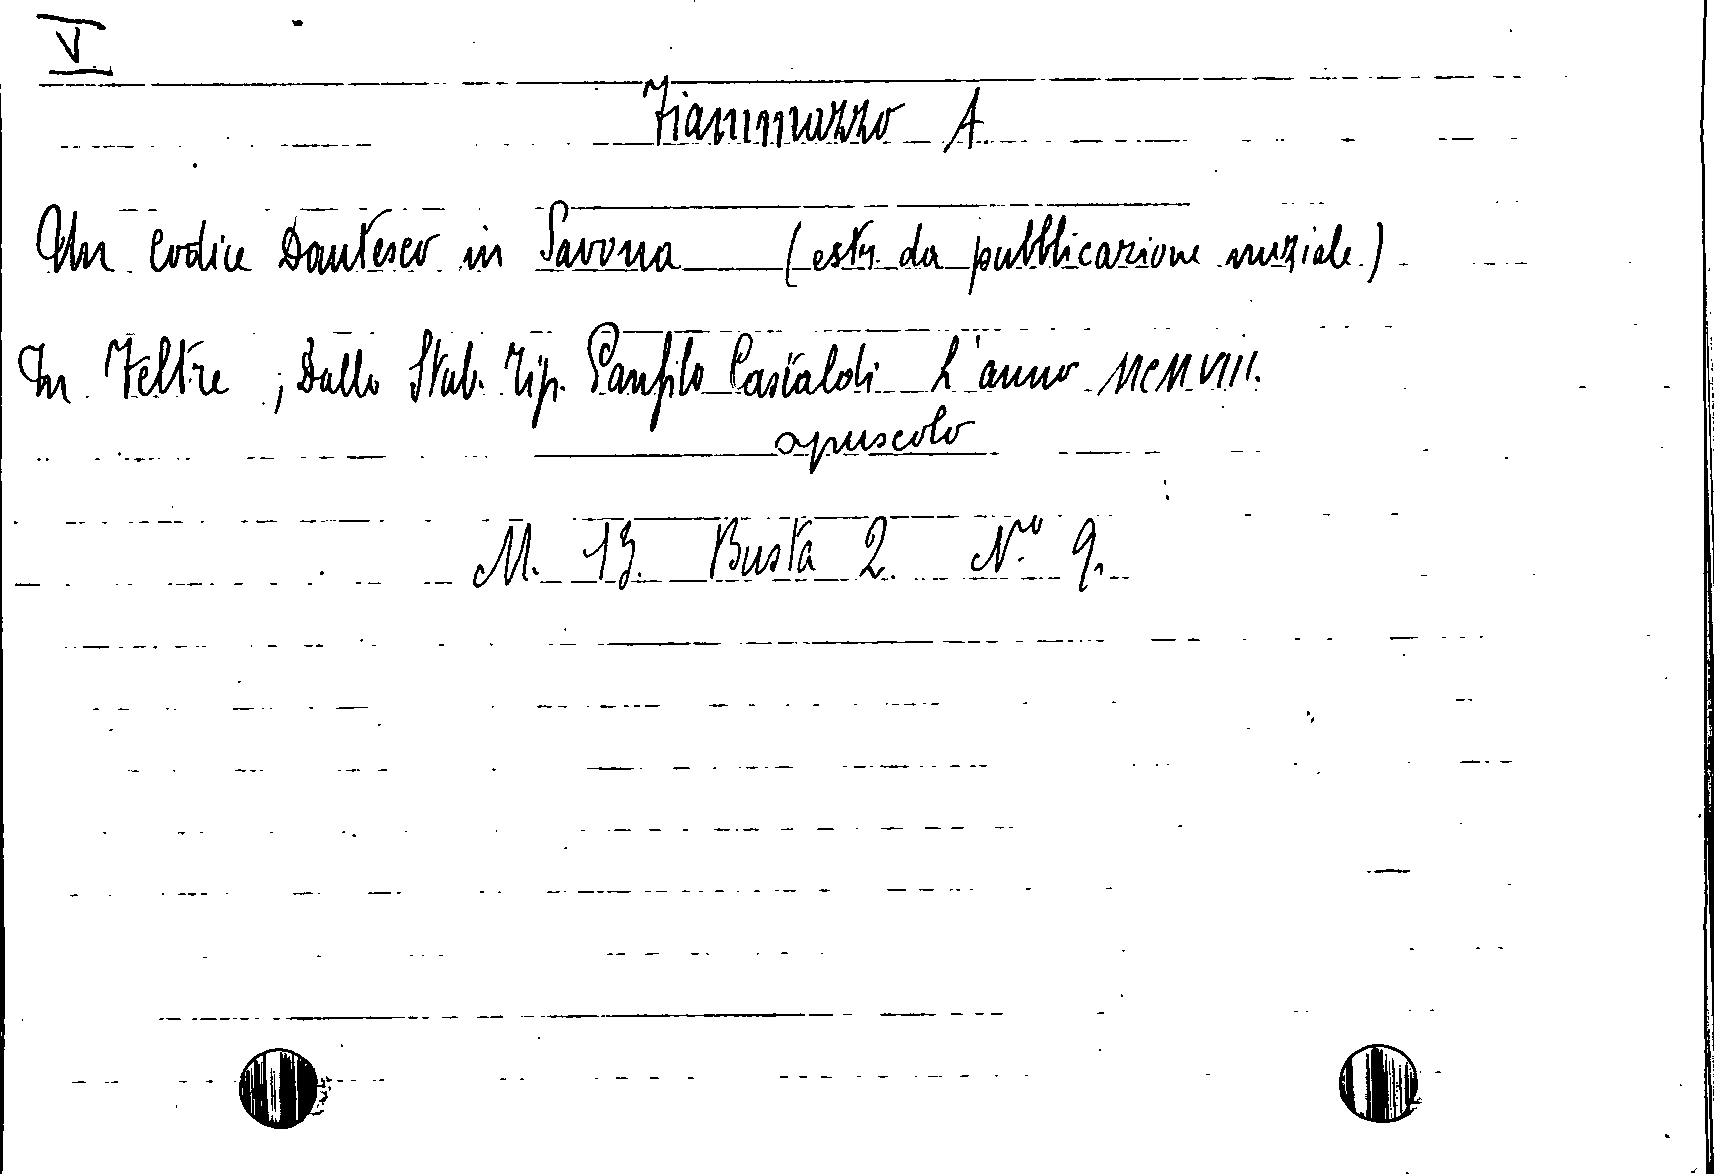 V
Fiammazzo A.
Un Codice Dantesco in Savona (estr. da pubblicazione nuziale.)
In Feltre, Dallo Stab. Tip. Panfilo Castaldi L'anno MCMVIII.
opuscolo
M. 13. Busta 2. N.º 9.